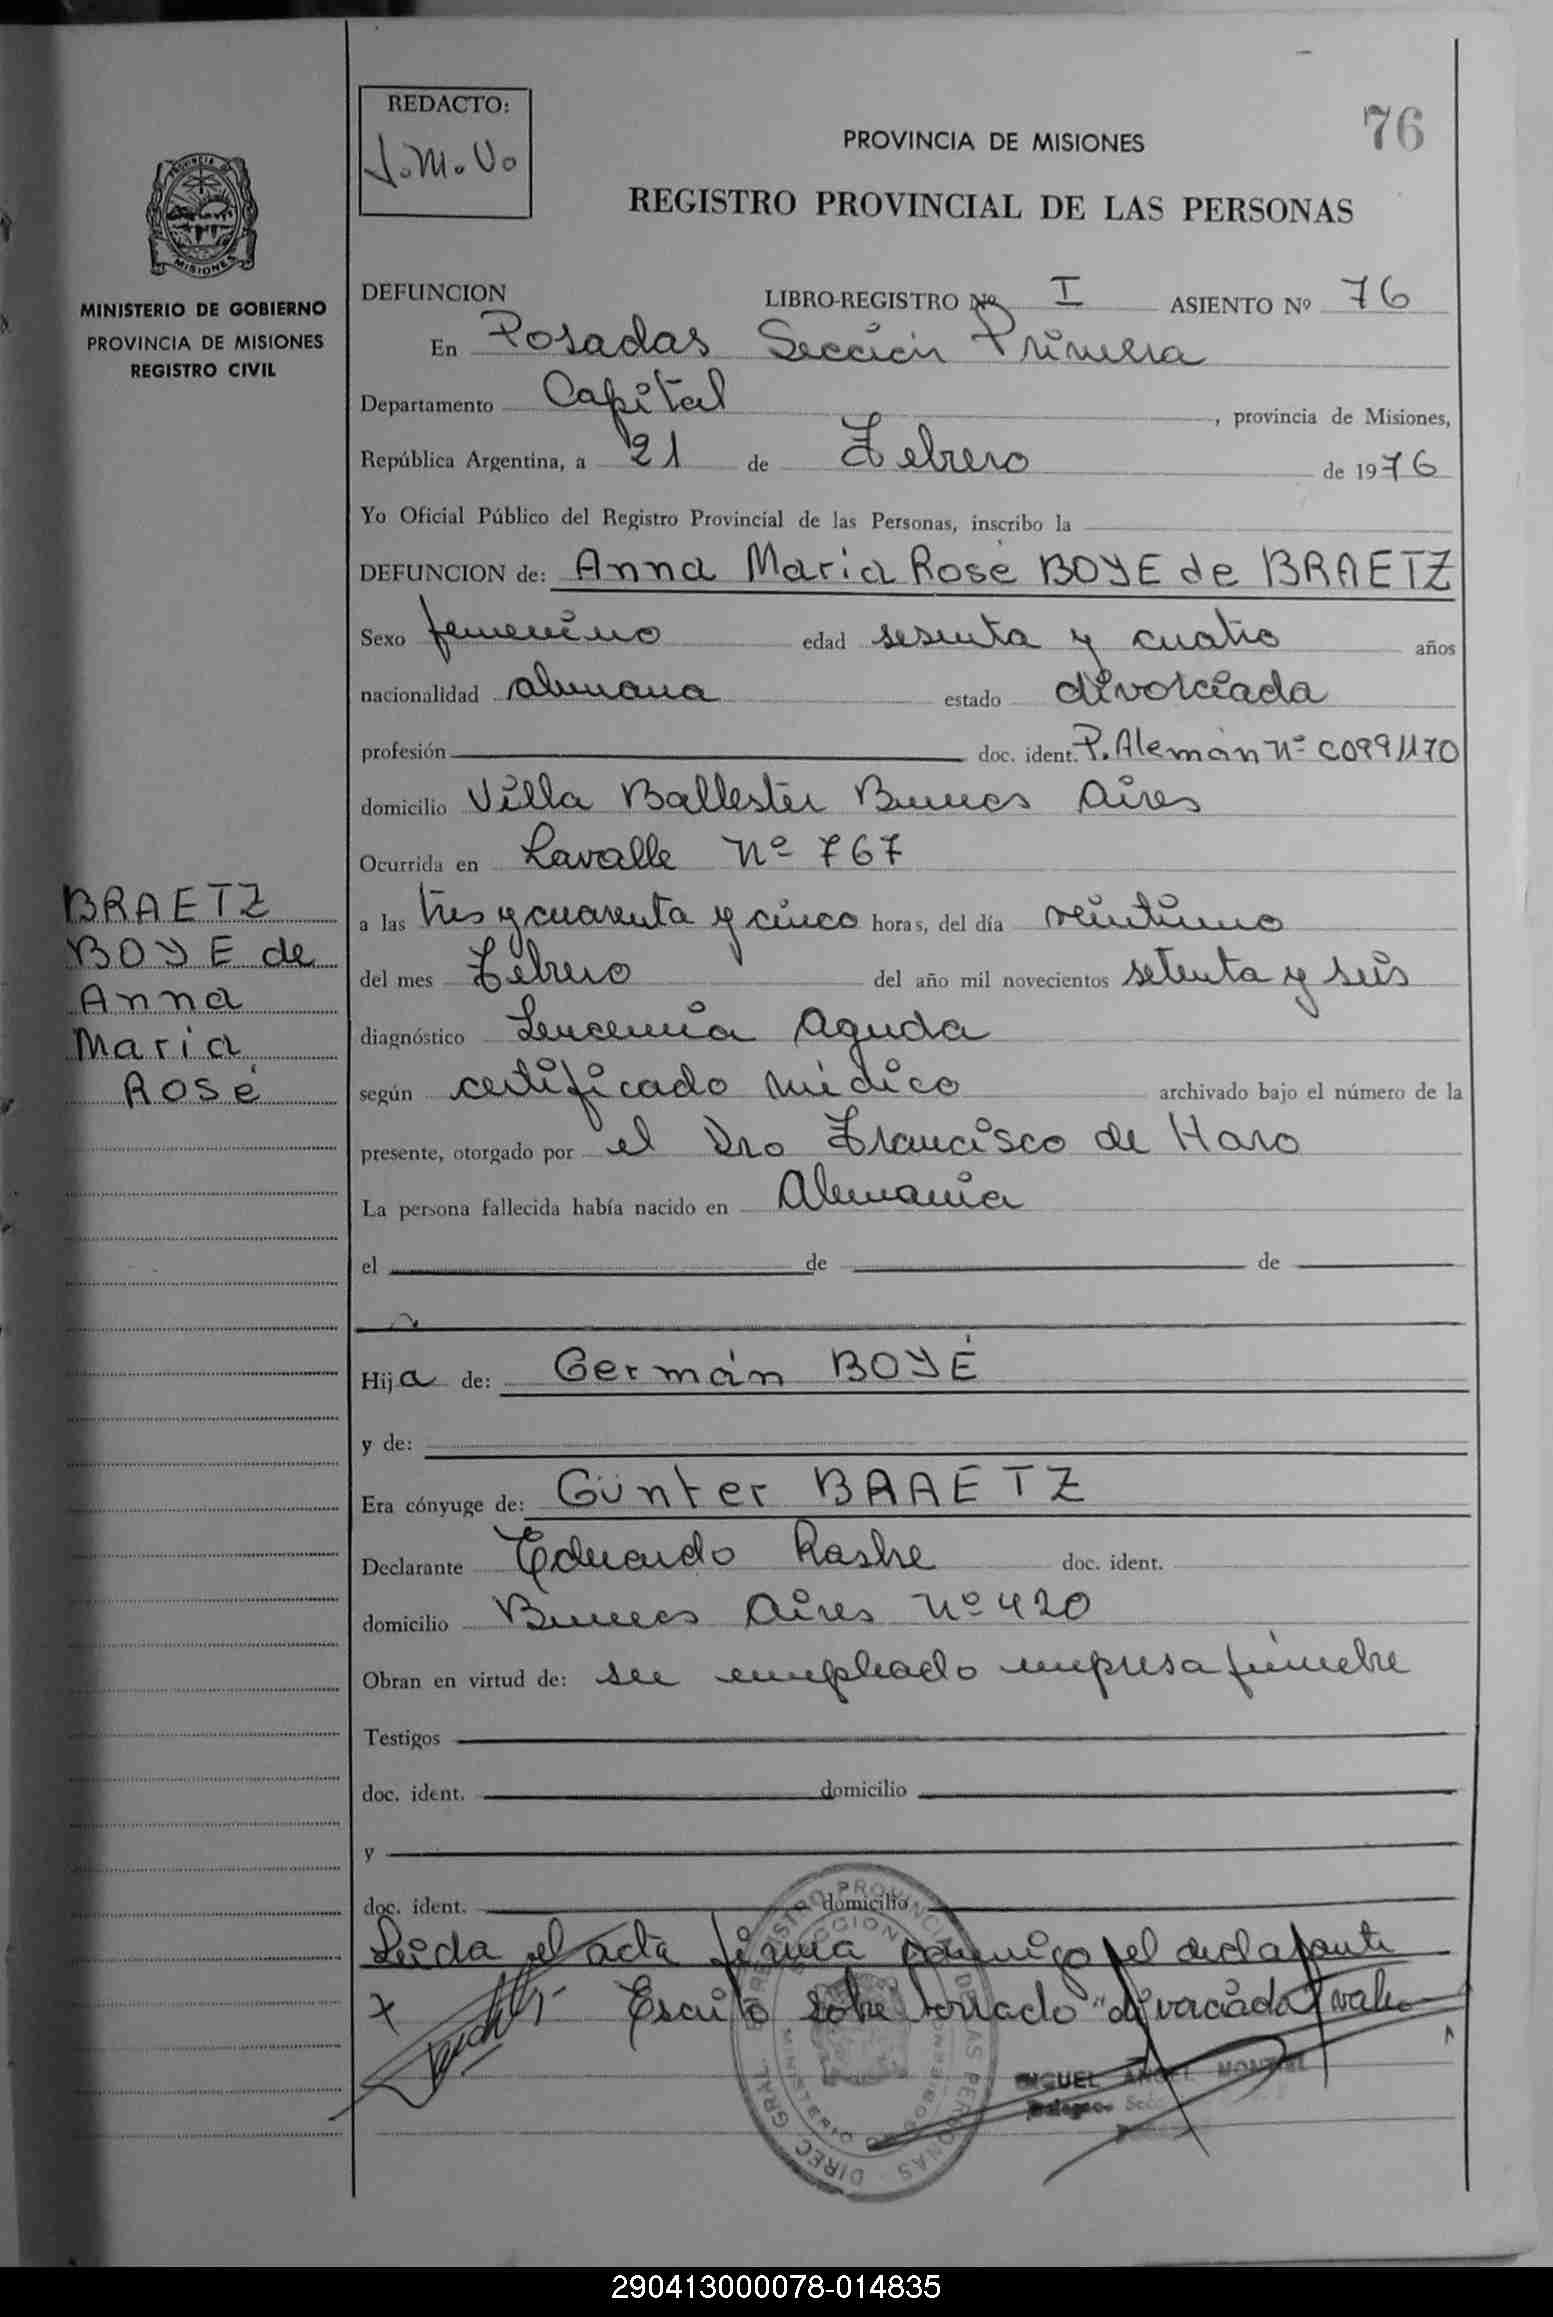 REDACTO:
J.M.Vo
76
PROVINCIA DE MISIONES
REGISTRO PROVINCIAL DE LAS PERSONAS
PROVINCIA DE MISIONES
MINISTERIO DE GOBIERNO
PROVINCIA DE MISIONES
REGISTRO CIVIL
DEFUNCION LIBRO-REGISTRO Nº I ASIENTO Nº 76
En Posadas Sección Primera
Departamento Capital, provincia de Misiones,
República Argentina, a 21 de Febrero de 1976
Yo Oficial Público del Registro Provincial de las Personas, inscribo la
DEFUNCION de: Anna Maria Rosé BOYE de BRAETZ
Sexo femenino edad sesenta y cuatro años
nacionalidad alemana estado divorciada
profesión doc. ident. P. Alemán Nº C0991170
domicilio Villa Ballester Buenos Aires
Ocurrida en Lavalle Nº 767
a las tres y cuarenta y cinco horas, del día veintiuno
del mes Febrero del año mil novecientos setenta y seis
diagnóstico Leucemia Aguda
según certificado médico archivado bajo el número de la
presente, otorgado por el Dro Francisco de Haro
La persona fallecida había nacido en Alemania
el de de
Hija de: Germán BOYÉ
y de:
Era cónyuge de: Günter BRAETZ
Declarante Eduardo doc. ident.
domicilio Buenos Aires Nº 420
Obran en virtud de: ser empleado empresa fúnebre
Testigos
doc. ident. domicilio
y
doc. ident. domicilio
Leida el acta firma conmigo el declarante
Escrito sobre borrado "divorciada" vale
BRAETZ
BOYE de
Anna
Maria
Rosé
DIREC. GRAL. REGISTRO PROVINCIAL DE LAS PERSONAS
MINISTERIO DE GOBIERNO
MIGUEL ANGEL
290413000078-014835